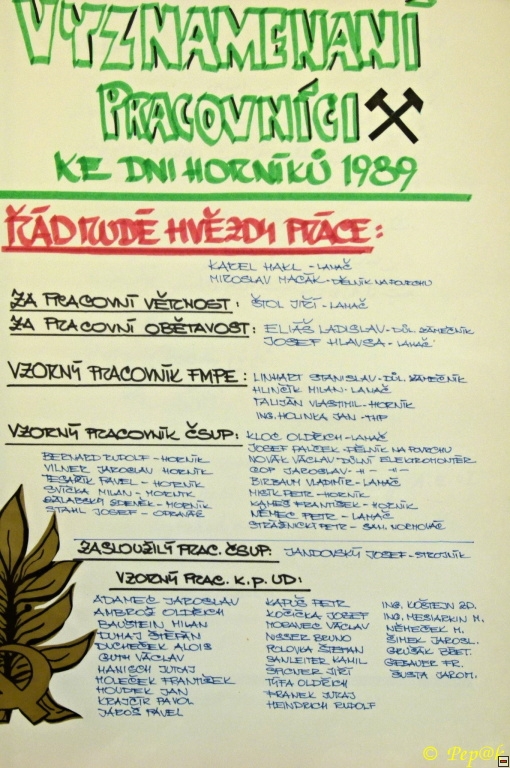 VYZNAMENANÍ
PRACOVNÍCI
KE DNI HORNÍKŮ 1989
ŘÁD RUDÉ HVĚZDY PRÁCE:
KAREL HAKL - LAMAČ
MIROSLAV MACÁK - DĚLNÍK NA POVRCHU
ZA PRACOVNÍ VĚRNOST: ŠTOL JIŘÍ - LAMAČ
ZA PRACOVNÍ OBĚTAVOST: ELIÁŠ LADISLAV - DŮL. ZÁMEČNÍK
JOSEF HLAVSA - LAMAČ
VZORNÝ PRACOVNÍK FMPE: LINHART STANISLAV - DŮL. ZÁMEČNÍK
HLINČÍK MILAN - LAMAČ
TALIJÁN VLASTIMIL - HORNÍK
ING. HOLINKA JAN - THP
VZORNÝ PRACOVNÍK ČSUP: KLOC OLDŘICH - LAMAČ
JOSEF PALČEK - DĚLNÍK NA POVRCHU
BERNARD RUDOLF - HORNÍK NOVÁK VÁCLAV DŮLNÍ ELEKTROMONTÉR
VILNER JAROSLAV HORNÍK COP JAROSLAV - II - - II -
TESAŘÍK PAVEL - HORNÍK BIRBAUM VLADIMÍR - LAMAČ
SVÍČKA MILAN - HORNÍK PETR - HORNÍK
ZDENĚK - HORNÍK FRANTIŠEK - HORNÍK
STAHL JOSEF - NĚMEC PETR - LAMAČ
STRÁŽNICKÝ PETR - SAM. NORMOVAČ
ZASLOUŽILÝ PRAC. ČSUP: JANDOVSKÝ JOSEF - STROJNÍK
VZORNÝ PRAC. K.P. UD:
ADAMEC JAROSLAV KAPUŠ PETR ING. KOŠTEJN ZD.
AMBROŽ OLDŘICH KOČIČKA JOSEF ING. MESIARKIN M.
BAUŠTEIN MILAN HOBANEC VÁCLAV NĚMEČEK M.
DUHAJ ŠTEFAN NISSER BRUNO ŠIMEK JAROSL.
DUCHEČEK ALOIS POLOVKA ŠTEFAN GRUŠÁK BŘET.
GUTH VÁCLAV SANLEITER KAMIL GEBAUER FR.
HANISCH JURAJ ŠPICNER JIŘÍ SUSTA JAROM.
HOLEČEK FRANTIŠEK TÝFA OLDŘICH
HOUDEK JAN FRANEK JURAJ
KRAJČÍR PAVOL HEINDRICH RUDOLF
JAROŠ PAVEL
© Pep@k